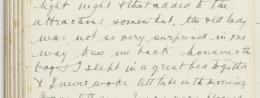 light night & that added to the
attractions somewhat, the old lady
was not so very surprised, in one
way to see me back, however the
boys & I slept in a great bed together
& I never woke till late in the morning